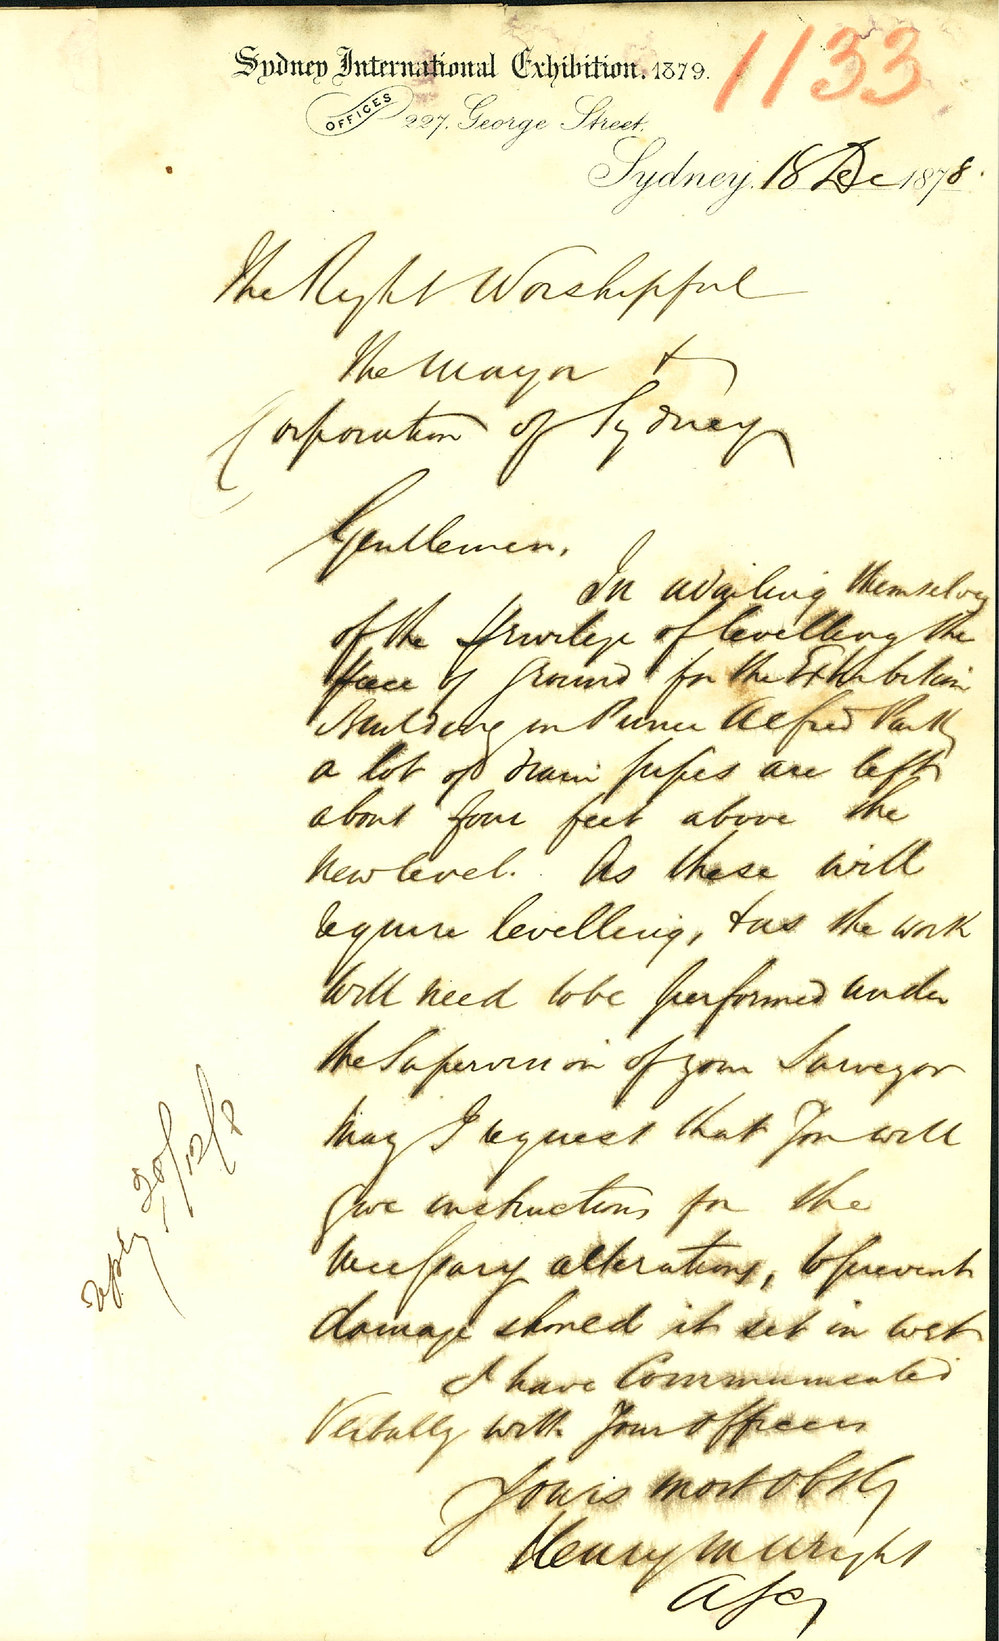 Sydney International Exhibition. 1879.
1133
OFFICES
227. George Street.
Sydney. 18 Dec 1878.
The Right Worshipful
The Mayor &
Corporation of Sydney
Gentlemen,
In availing themselves
of the privilege of levelling the
piece of ground for the Exhibition
Building in Prince Alfred Park
a lot of drain pipes are left
about four feet above the
new level. As these will
require levelling, & as the work
will need to be performed under
the Supervision of your Surveyor
may I request that you will
give instructions for the
necessary alterations, to prevent
damage should it set in wet
I have Communicated
Verbally with your Officers
Yours most Obtly
Henry M Wright
20/12/8